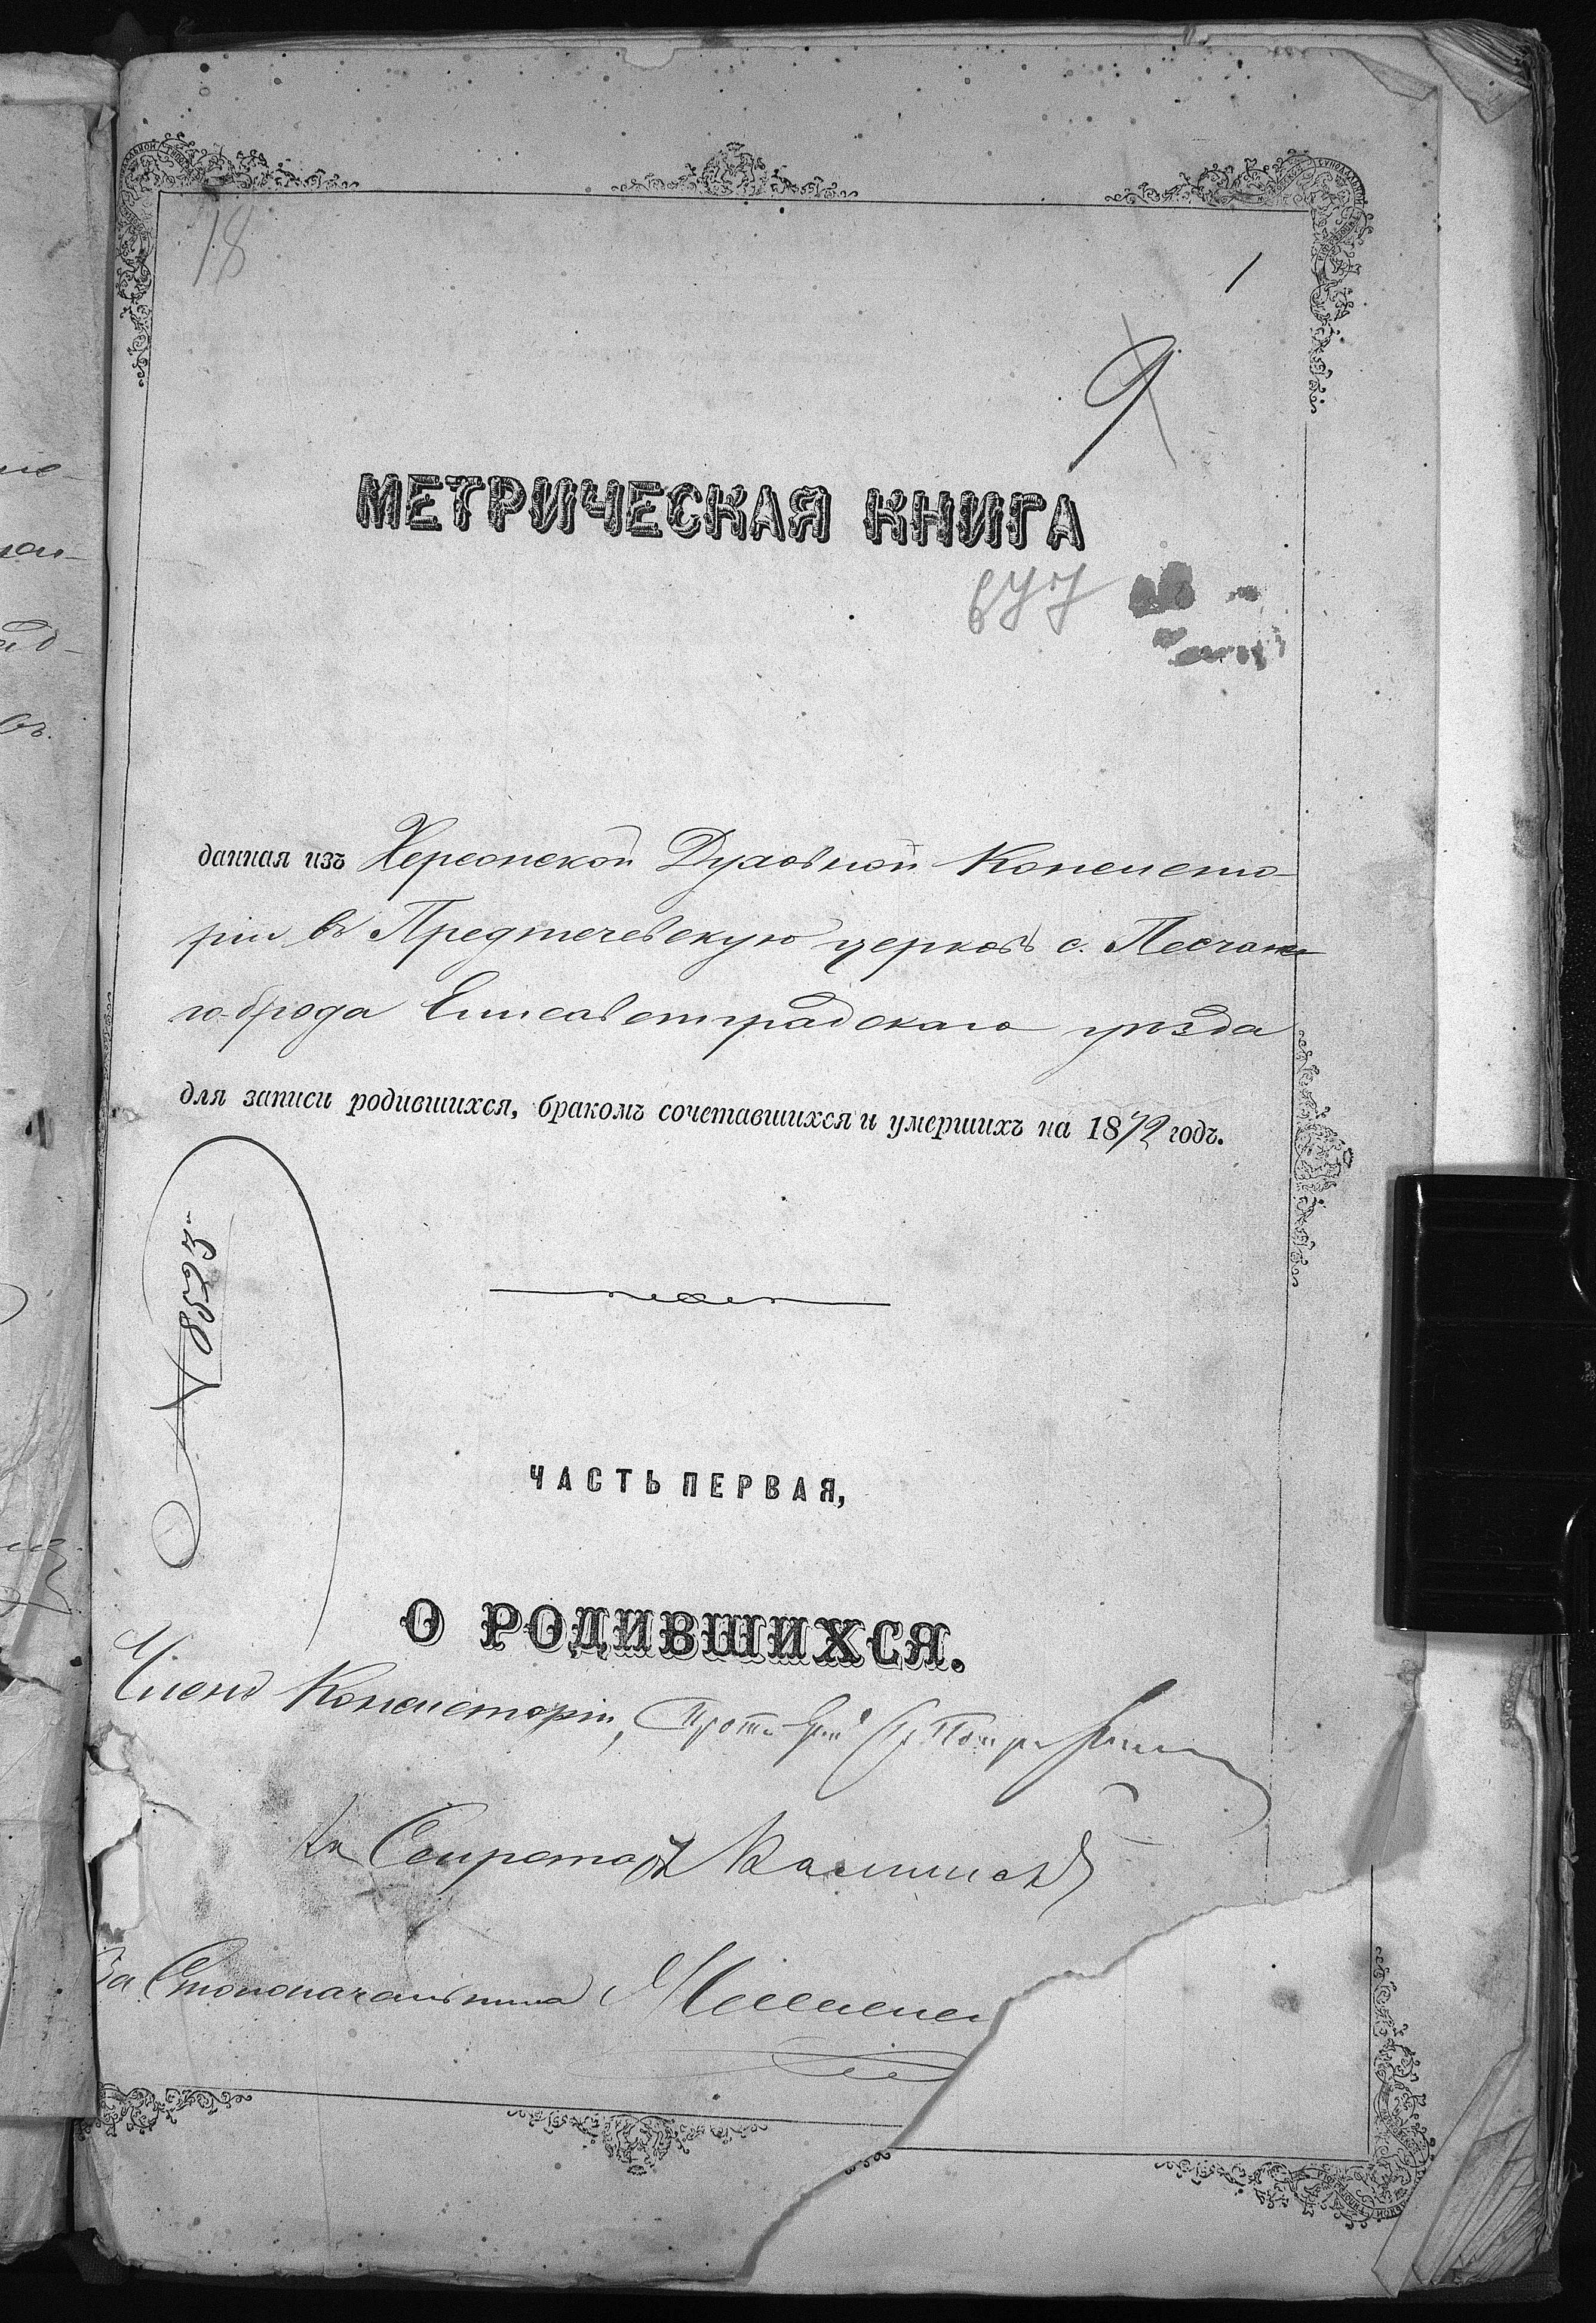 18
1
9
МЕТРИЧЕСКАЯ КНИГА
677
данная изъ Херсонской Духовной Консисто-
ріи въ Предтечевскую церковь с. Песчана-
го-брода Елисаветградскаго уѣзда
для записи родившихся, бракомъ сочетавшихся и умершихъ на 1872 годъ.
№ 8523
ЧАСТЬ ПЕРВАЯ,
О РОДИВШИХСЯ.
Членъ Консисторіи, Протоіерей
Секретарь
За Столоначальника